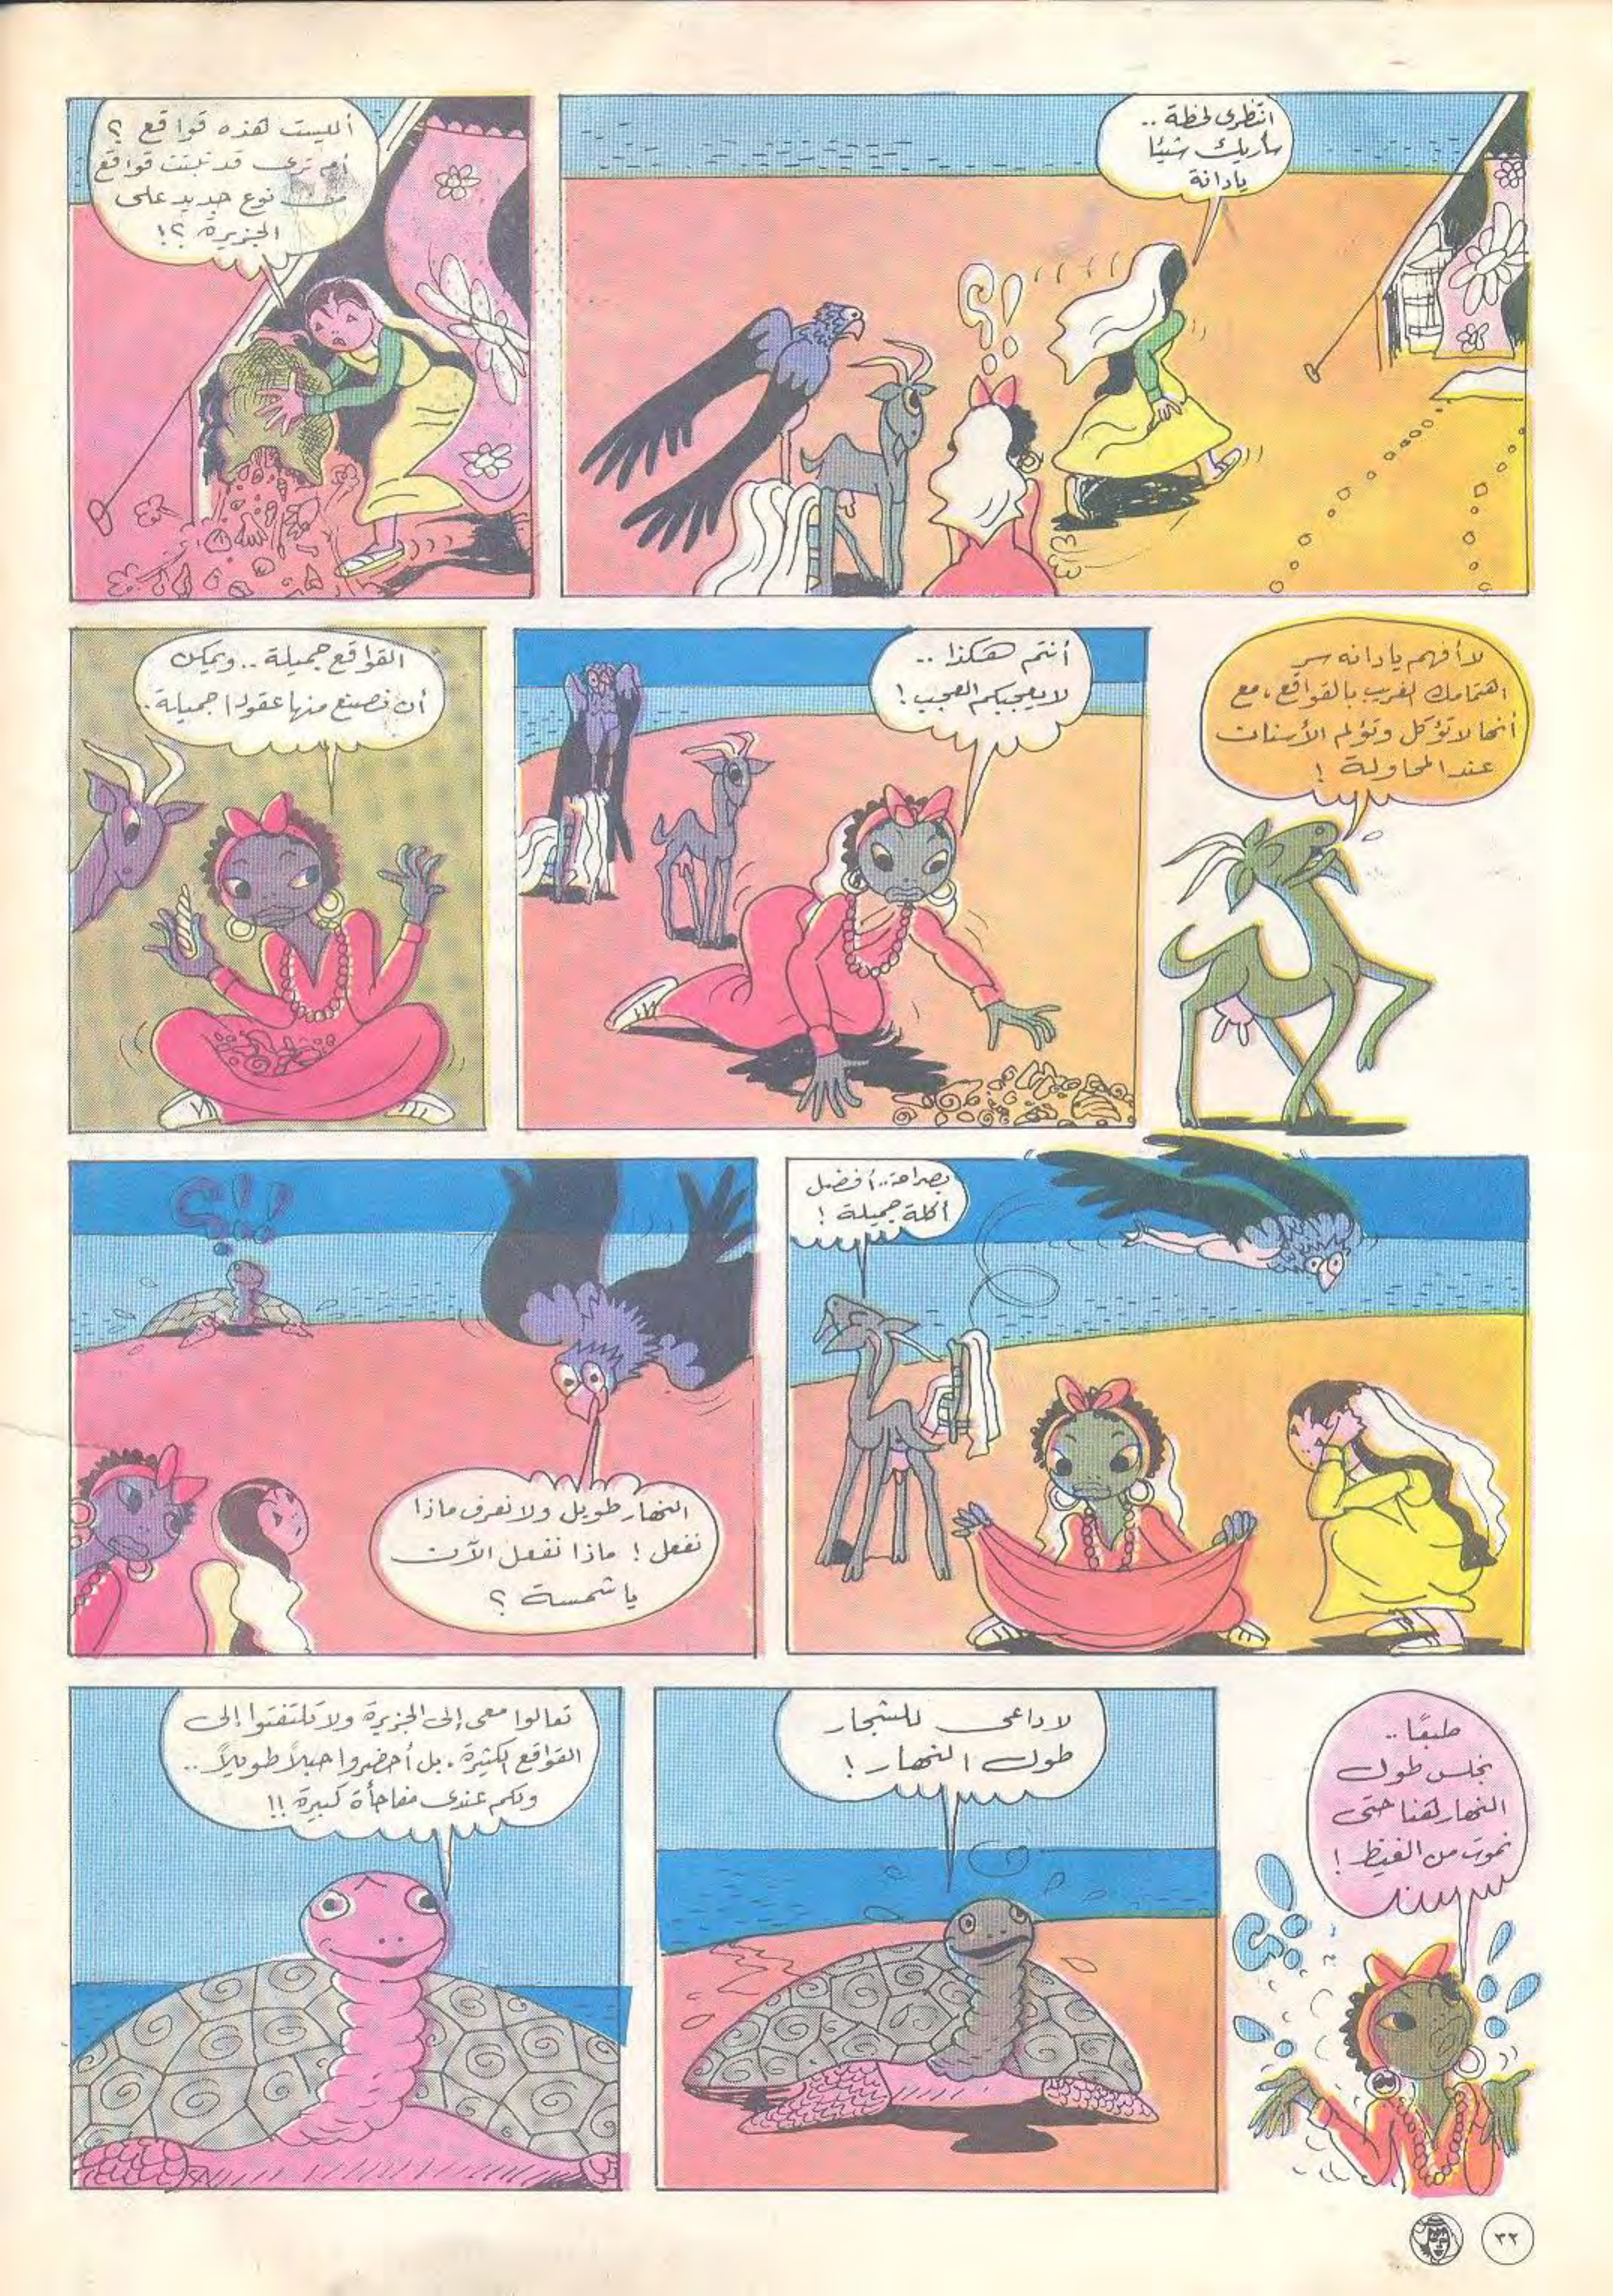 انتظرى لحظة ..
سأريك شيئا
يادانة
أليست هذه قواقع ؟
أم ترى قد نبتت قواقع
من نوع جديد على
الجزيرة ؟!
لا أفهم يا دانه سر
اهتمامك الغريب بالقواقع، مع
أنها لا تؤكل وتؤلم الأسنان
عند المحاولة !
أنتم هكذا ..
لا يعجبكم العجب !
القواقع جميلة .. ويمكن
أن نصنع منها عقودا جميلة ..
بصراحة .. أفضل
أكلة جميلة !
النهار طويل ولا نعرف ماذا
نفعل ! ماذا نفعل الآن
يا شمسة ؟
طبعًا ..
نجلس طول
النهار هنا حتى
نموت من الغيظ !
لا داعى للشجار
طول النهار !
تعالوا معى إلى الجزيرة ولا تلتفتوا إلى
القواقع الكثيرة . بل أحضروا حبلاً طويلاً ..
ولكم عندى مفاجأة كبيرة !!
٣٢